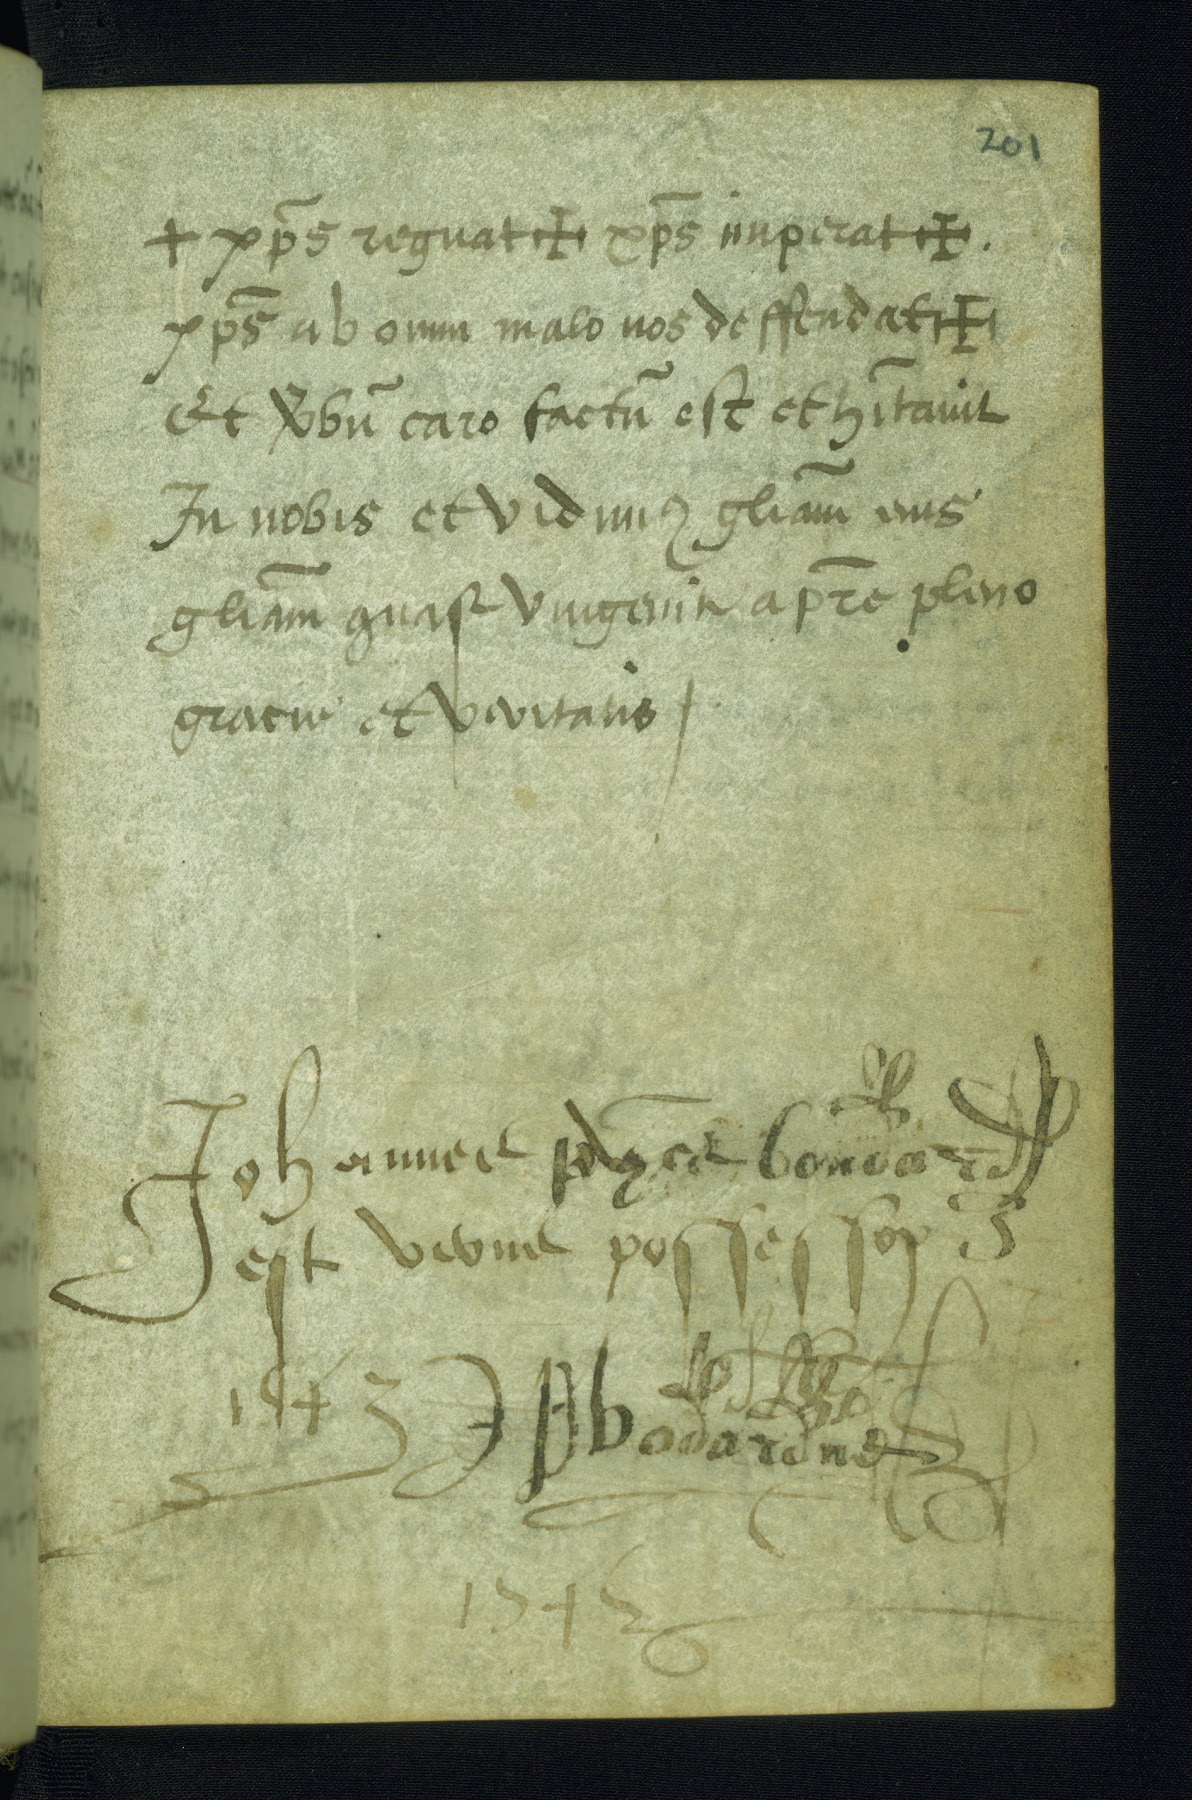 201
+ xp̄s regnat ✠ xp̄s imperat ✠.
xp̄s ab omni malo nos deffendat ✠
Et v̄bū caro factū est et hītavit
In nobis et vidimꝰ gl̄iam eius
gl̄iam quasi vnigeniti a pr̄e pleno
gracie et veritatis /
Johannes
est verus possessor
1543 J P bodardus
1543